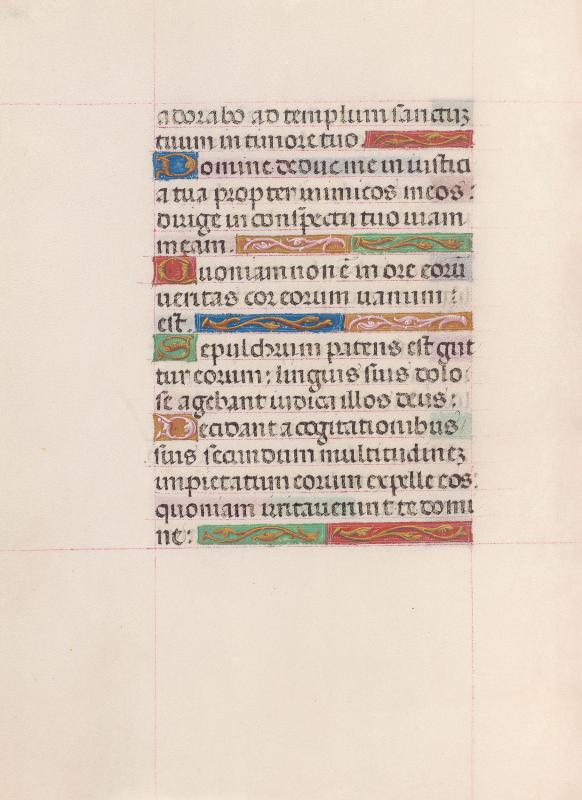 adorabo ad templum sanctuʒ
tuum in timore tuo.
Domine deduc me in iustici
a tua propter inimicos meos:
dirige in conspectu tuo uiam
meam.
Quoniam non ē in ore eorū
ueritas cor eorum uanum :
est.
Sepulchrum patens est gut
tur eorum: linguis suis dolo:
se agebant iudica illos deus:
Decidant a cogitationibus
suis secundum multitudineʒ
impietatum eorum expelle eos:
quoniam irritauerunt te domi
ne: